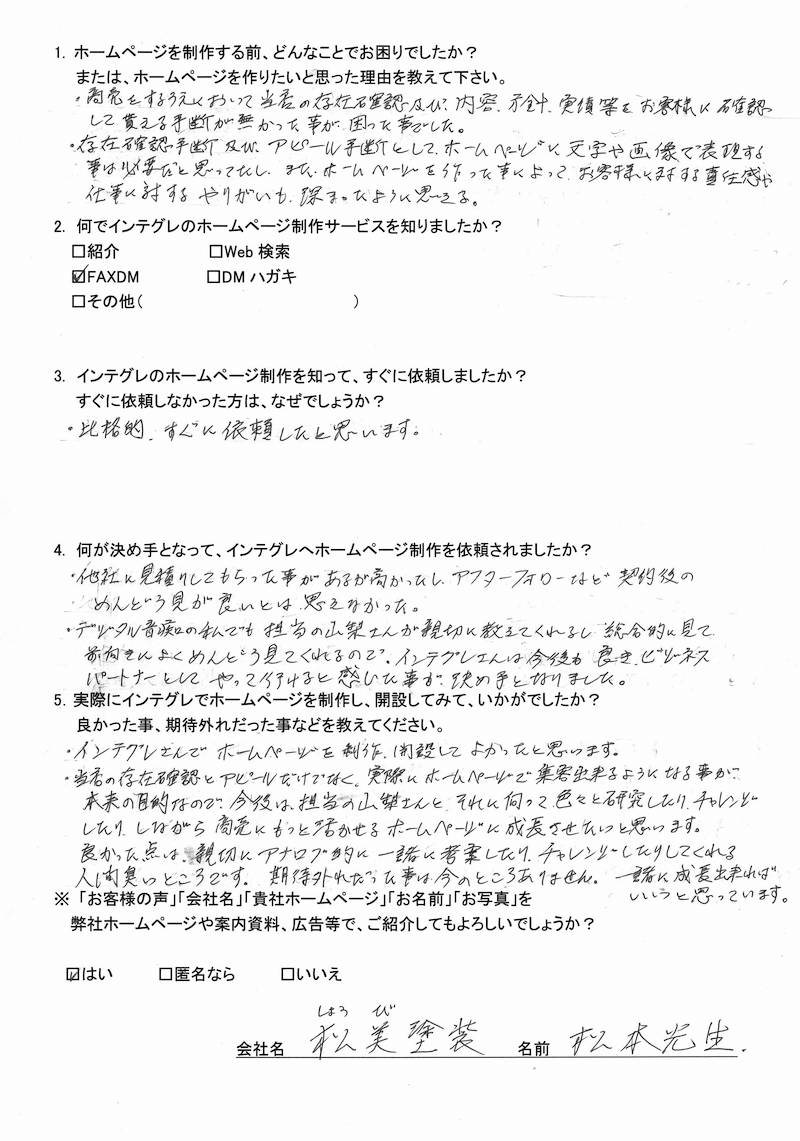 1. ホームページを制作する前、どんなことでお困りでしたか？
または、ホームページを作りたいと思った理由を教えて下さい。
・商売をするうえにおいて当店の存在確認及び、内容、方針、実績等をお客様に確認
して貰える手断が無かった事が、困った事でした。
・存在確認手断及び、アピール手断として、ホームページに文字や画像で表現する
事は必要だと思ってたし、また、ホームページを作った事によって、お客様に対する責任感や
仕事に対するやりがいも、深まったように思える。
2. 何でインテグレのホームページ制作サービスを知りましたか？
□紹介 □Web 検索
☑FAXDM □DM ハガキ
□その他( )
3. インテグレのホームページ制作を知って、すぐに依頼しましたか？
すぐに依頼しなかった方は、なぜでしょうか？
・比格的、すぐに依頼したと思います。
4. 何が決め手となって、インテグレへホームページ制作を依頼されましたか？
・他社に見積りしてもらった事があるが高かったし、アフターフォローなど契約後の
めんどう見が良いとは思えなかった。
・デジタル音痴の私でも担当の山梨さんが親切に教えてくれるし、総合的に見て
前向きによくめんどう見てくれるので、インテグレさんは今後も良き、ビジネス
パートナーとしてやって行けると感じた事が、決め手となりました。
5. 実際にインテグレでホームページを制作し、開設してみて、いかがでしたか？
良かった事、期待外れだった事などを教えてください。
・インテグレさんでホームページを制作、開設してよかったと思います。
・当店の存在確認とアピールだけでなく、実際にホームページで集客出来るようになる事が、
本来の目的なので、今後は、担当の山梨さんと、それに向って色々と研究したり、チャレンジ
したり、しながら商売にもっと活かせるホームページに成長させたいと思います。
良かった点は、親切にアナログ的に一緒に考案したり、チャレンジしたりしてくれる
人間臭いところです。期待外れだった事は今のところありません。一緒に成長出来れば
いいうと思っています。
※「お客様の声」「会社名」「貴社ホームページ」「お名前」「お写真」を
弊社ホームページや案内資料、広告等で、ご紹介してもよろしいでしょうか？
☑はい □匿名なら □いいえ
しょう び
会社名 松美塗装 名前 松本光生.